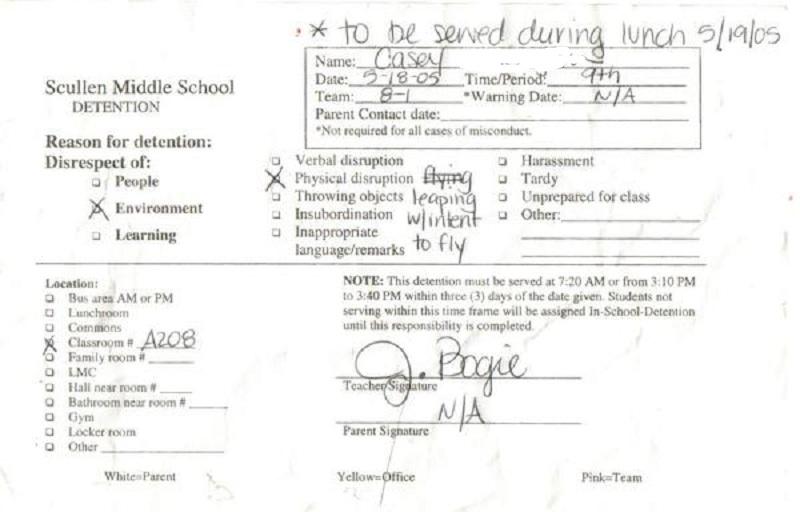 * to be served during lunch 5/19/05
Name: Casey
Date: 5-18-05 Time/Period: 9th
Team: 8-1 *Warning Date: N/A
Parent Contact date:
*Not required for all cases of misconduct.
Scullen Middle School
DETENTION
Reason for detention:
Disrespect of:
People
Environment
Learning
Verbal disruption
Physical disruption flying
Throwing objects leaping
Insubordination w/intent
Inappropriate
language/remarks to fly
Harassment
Tardy
Unprepared for class
Other:
Location:
Bus area AM or PM
Lunchroom
Commons
Classroom # A208
Family room #
LMC
Hall near room #
Bathroom near room #
Gym
Locker room
Other
NOTE: This detention must be served at 7:20 AM or from 3:10 PM
to 3:40 PM within three (3) days of the date given. Students not
serving within this time frame will be assigned In-School-Detention
until this responsibility is completed.
J. Bogie
Teacher Signature
N/A
Parent Signature
White=Parent Yellow=Office Pink=Team